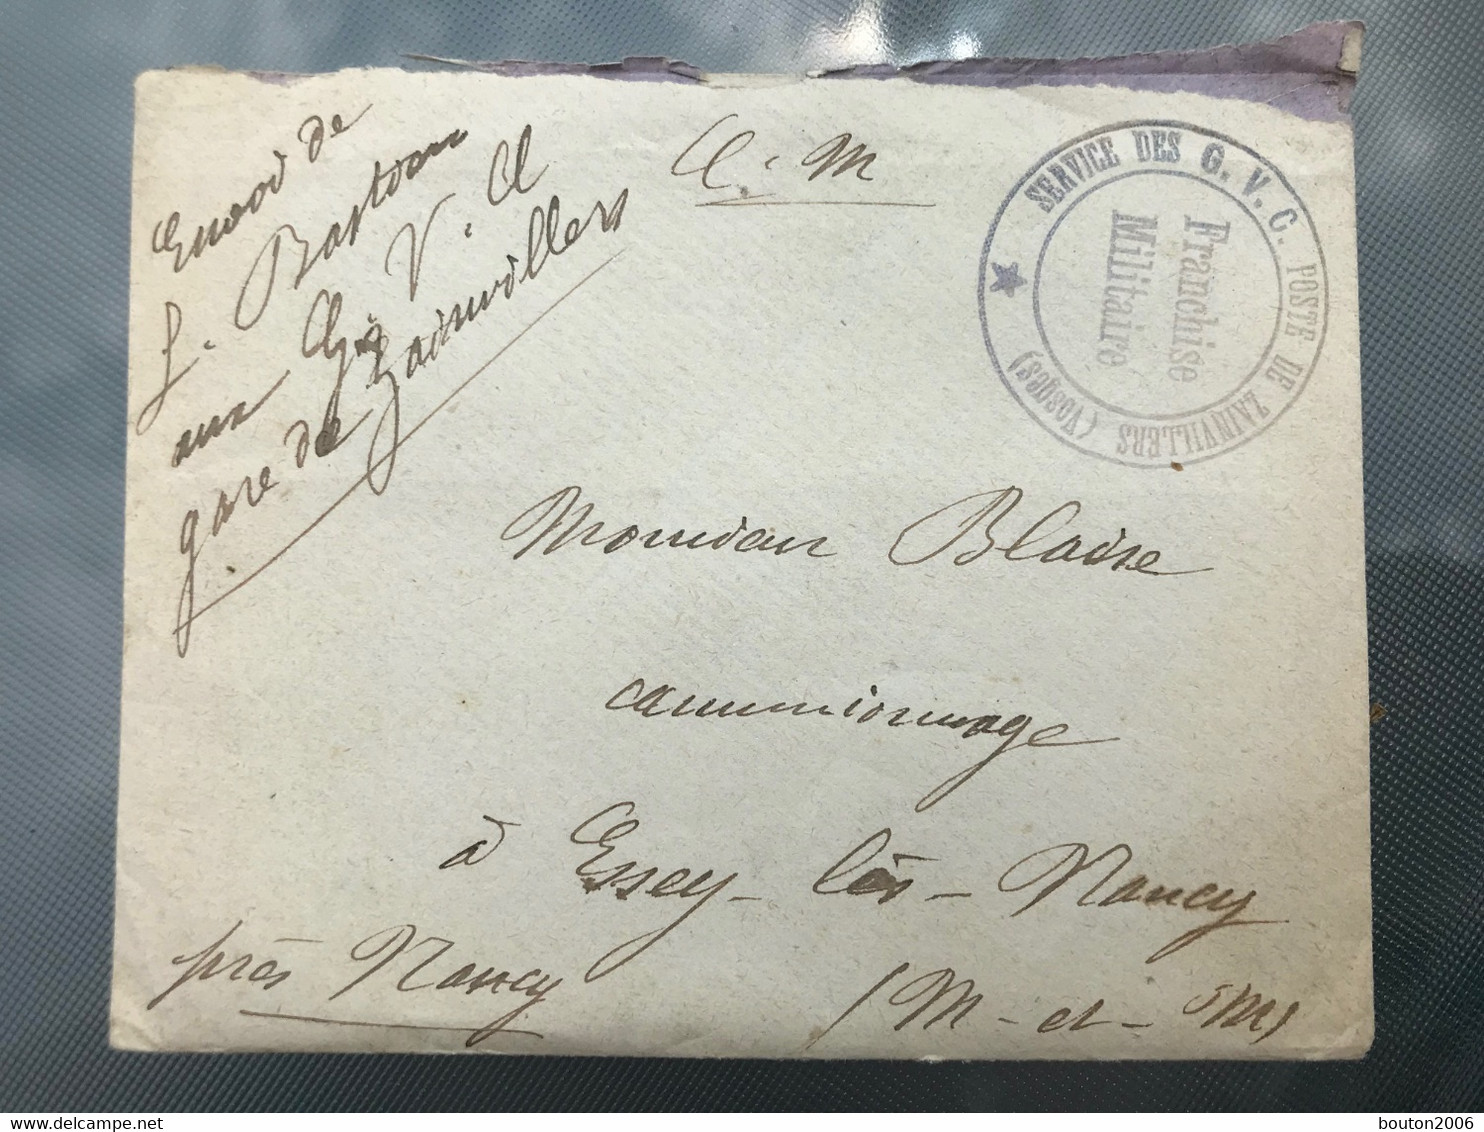 Envoi de
L. Bastien
aux G. V. C
gare de Zainvillers
C. M
SERVICE DES G. V. C. POSTE DE ZAINVILLERS (Vosges)
Franchise
Militaire
Monsieur Blaise
camionnage
à Essey-lès-Nancy
près Nancy
(M-et-M)
delcampe.net
bouton2006